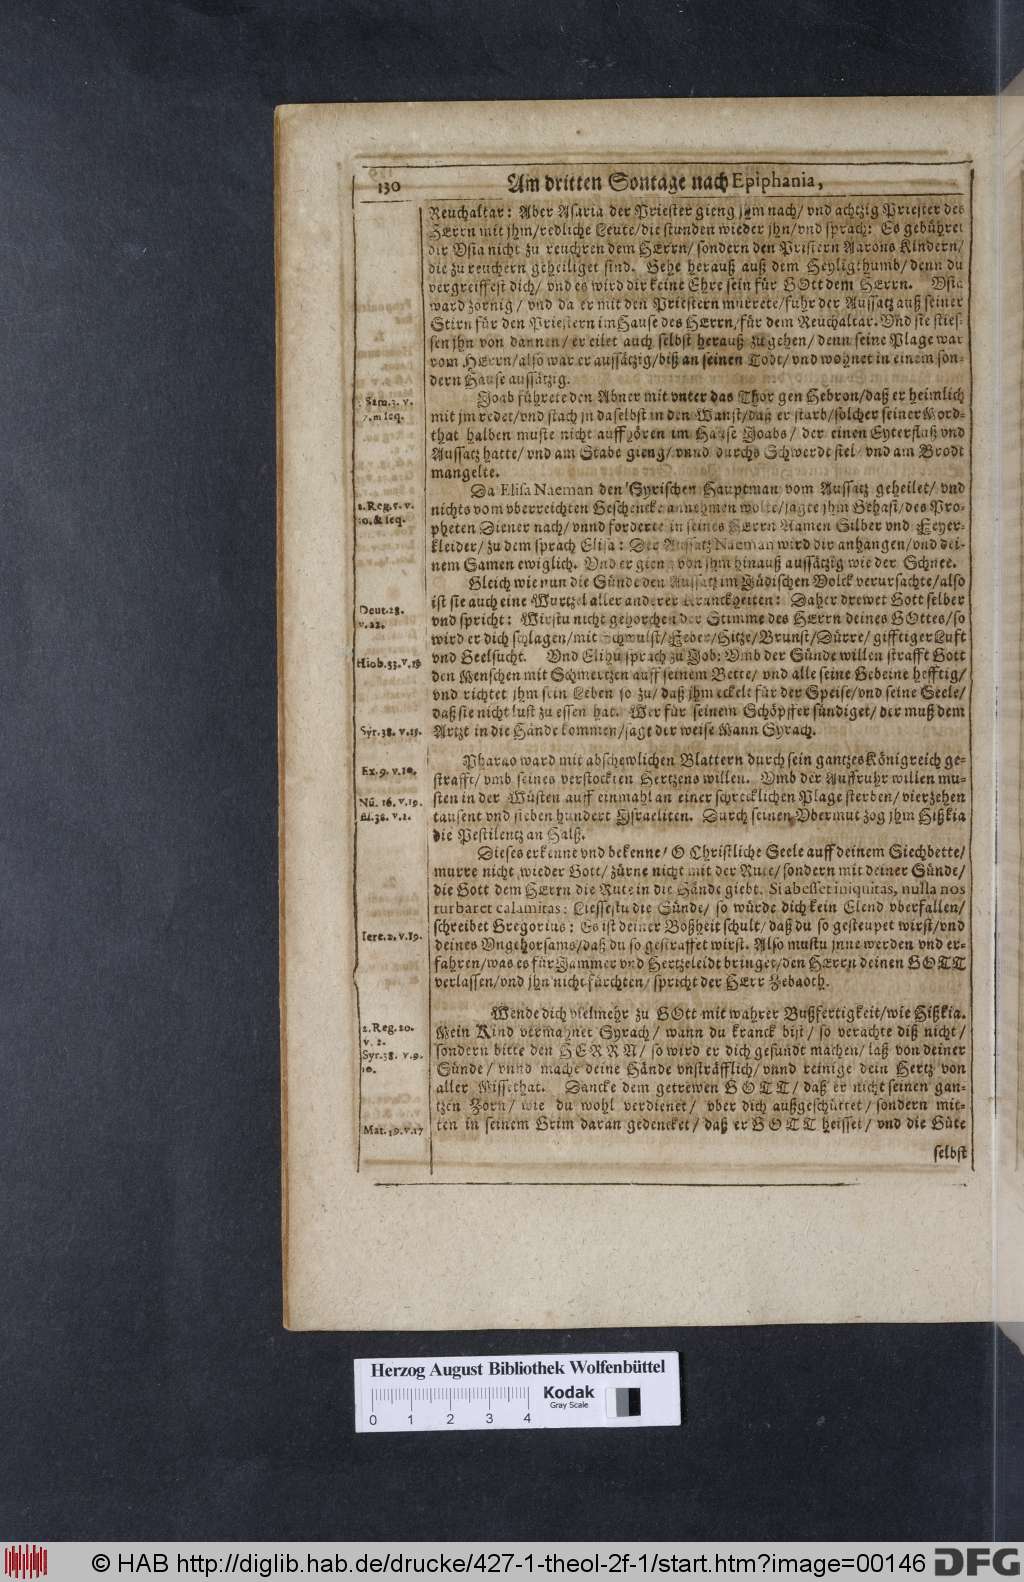 130 Am dritten Sontage nach Epiphania,
Reuchaltar: Aber Asaria der Priester gieng jhm nach/ vnd achtzig Priester des
HErrn mit jhm/redliche Leute/die stunden wieder jhn/vnd sprach: Es gebühret
dir Vsia nicht zu reuchren dem HErrn/ sondern den Pristern Aarons Kindern/
die zu reuchern geheiliget sind. Gehe herauß auß dem Heyligthumb/ denn du
vergreiffest dich/ vnd es wird dir keine Ehre sein für GOtt dem HErrn. Vsia
ward zornig/ vnd da er mit den Priestern murrete/fuhr der Aussatz auß seiner
Stirn für den Priestern im Hause des HErrn/für dem Reuchaltar. Vnd sie sties-
sen jhn von dannen/ er eilet auch selbst herauß zu gehen/ denn seine Plage war
vom HErrn/also war er aussätzig/biß an seinen Todt/ vnd wohnet in einem son-
dern Hause aussätzig.
2. Sam. 3. v.
27. in seq.
Joab führete den Abner mit vnter das Thor gen Hebron/daß er heimlich
mit jm redet/vnd stach jn daselbst in den Wanst/daß er starb/solcher seiner Mord-
that halben muste nicht auffhören im Hause Joabs/ der einen Eyterfluß vnd
Aussatz hatte/ vnd am Stabe gieng/ vnnd durchs Schwerdt fiel/ vnd am Brodt
mangelte.
2. Reg. 5. v.
20. & seq.
Da Elisa Naeman den Syrischen Hauptman vom Aussatz geheilet/ vnd
nichts vom vberreichten Geschencke annehmen wolte/jagte jhm Gehasi/des Pro-
pheten Diener nach/ vnnd forderte in seines HErrn Namen Silber vnd Feyer-
kleider/ zu dem sprach Elisa: Der Aussatz Naeman wird dir anhangen/vnd dei-
nem Samen ewiglich. Vnd er gieng von jhm hinauß aussätzig wie der Schnee.
Gleich wie nun die Sünde den Aussatz im Jüdischen Volck verursachte/also
Deut. 28.
v. 22.
ist sie auch eine Wurtzel aller anderer Kranckheiten: Daher drewet Gott selber
vnd spricht: Wirstu nicht gehorchen der Stimme des HErrn deines GOttes/so
wird er dich schlagen/mit Schwulst/Feber/Hitze/Brunst/Dürre/ gifftiger Luft
Hiob. 33. v. 19
vnd Geelsucht. Vnd Elihu sprach zu Job: Vmb der Sünde willen strafft Gott
den Menschen mit Schmertzen auff seinem Bette/ vnd alle seine Gebeine hefftig/
vnd richtet jhm sein Leben so zu/ daß jhm eckelt für der Speise/vnd seine Seele/
daß sie nicht lust zu essen hat. Wer für seinem Schöpffer sündiget/ der muß dem
Syr. 38. v. 15.
Artzt in die Hände kommen/sagt der weise Mann Syrach.
Ex. 9. v. 10.
Pharao ward mit abschewlichen Blattern durch sein gantzes Königreich ge-
strafft/ vmb seines verstockten Hertzens willen. Vmb der Auffruhr willen mu-
Nũ. 16. v. 19.
sten in der Wüsten auff einmahl an einer schrecklichen Plage sterben/ vierzehen
tausent vnd sieben hundert Israeliten. Durch seinen Vbermut zog jhm Hißkia
die Pestilentz an Halß.
Dieses erkenne vnd bekenne/ O Christliche Seele auff deinem Siechbette/
murre nicht wieder Gott/ zürne nicht mit der Rute/ sondern mit deiner Sünde/
die Gott dem HErrn die Rute in die Hände giebt. Si abesset iniquitas, nulla nos
turbaret calamitas: Liessestu die Sünde/ so würde dich kein Elend vberfallen/
schreibet Gregorius: Es ist deiner Boßheit schult/ daß du so gesteupet wirst/vnd
Iere. 2. v. 19.
deines Vngehorsams/daß du so gestraffet wirst. Also mustu jnne werden vnd er-
fahren/was es für Jammer vnd Hertzeleidt bringet/den HErrn deinen GOTT
verlassen/vnd jhn nicht fürchten/ spricht der HErr Zebaoth.
2. Reg. 20.
v. 2.
Syr. 38. v. 9.
10.
Wende dich vielmehr zu GOtt mit wahrer Bußfertigkeit/wie Hißkia.
Mein Kind vermahnet Syrach/ wann du kranck bist/ so verachte diß nicht/
sondern bitte den HERRN/ so wird er dich gesundt machen/ laß von deiner
Sünde/ vnnd mache deine Hände vnsträfflich/ vnnd reinige dein Hertz von
aller Missethat. Dancke dem getrewen GOTT/ daß er nicht seinen gan-
tzen Zorn/ wie du wohl verdienet/ vber dich außgeschüttet/ sondern mit-
Mat. 19. v. 17
ten in seinem Grim daran gedencket/ daß er GOTT heisset/ vnd die Güte
selbst
Herzog August Bibliothek Wolfenbüttel
Kodak
Gray Scale
0 1 2 3 4
© HAB http://diglib.hab.de/drucke/427-1-theol-2f-1/start.htm?image=00146 DFG